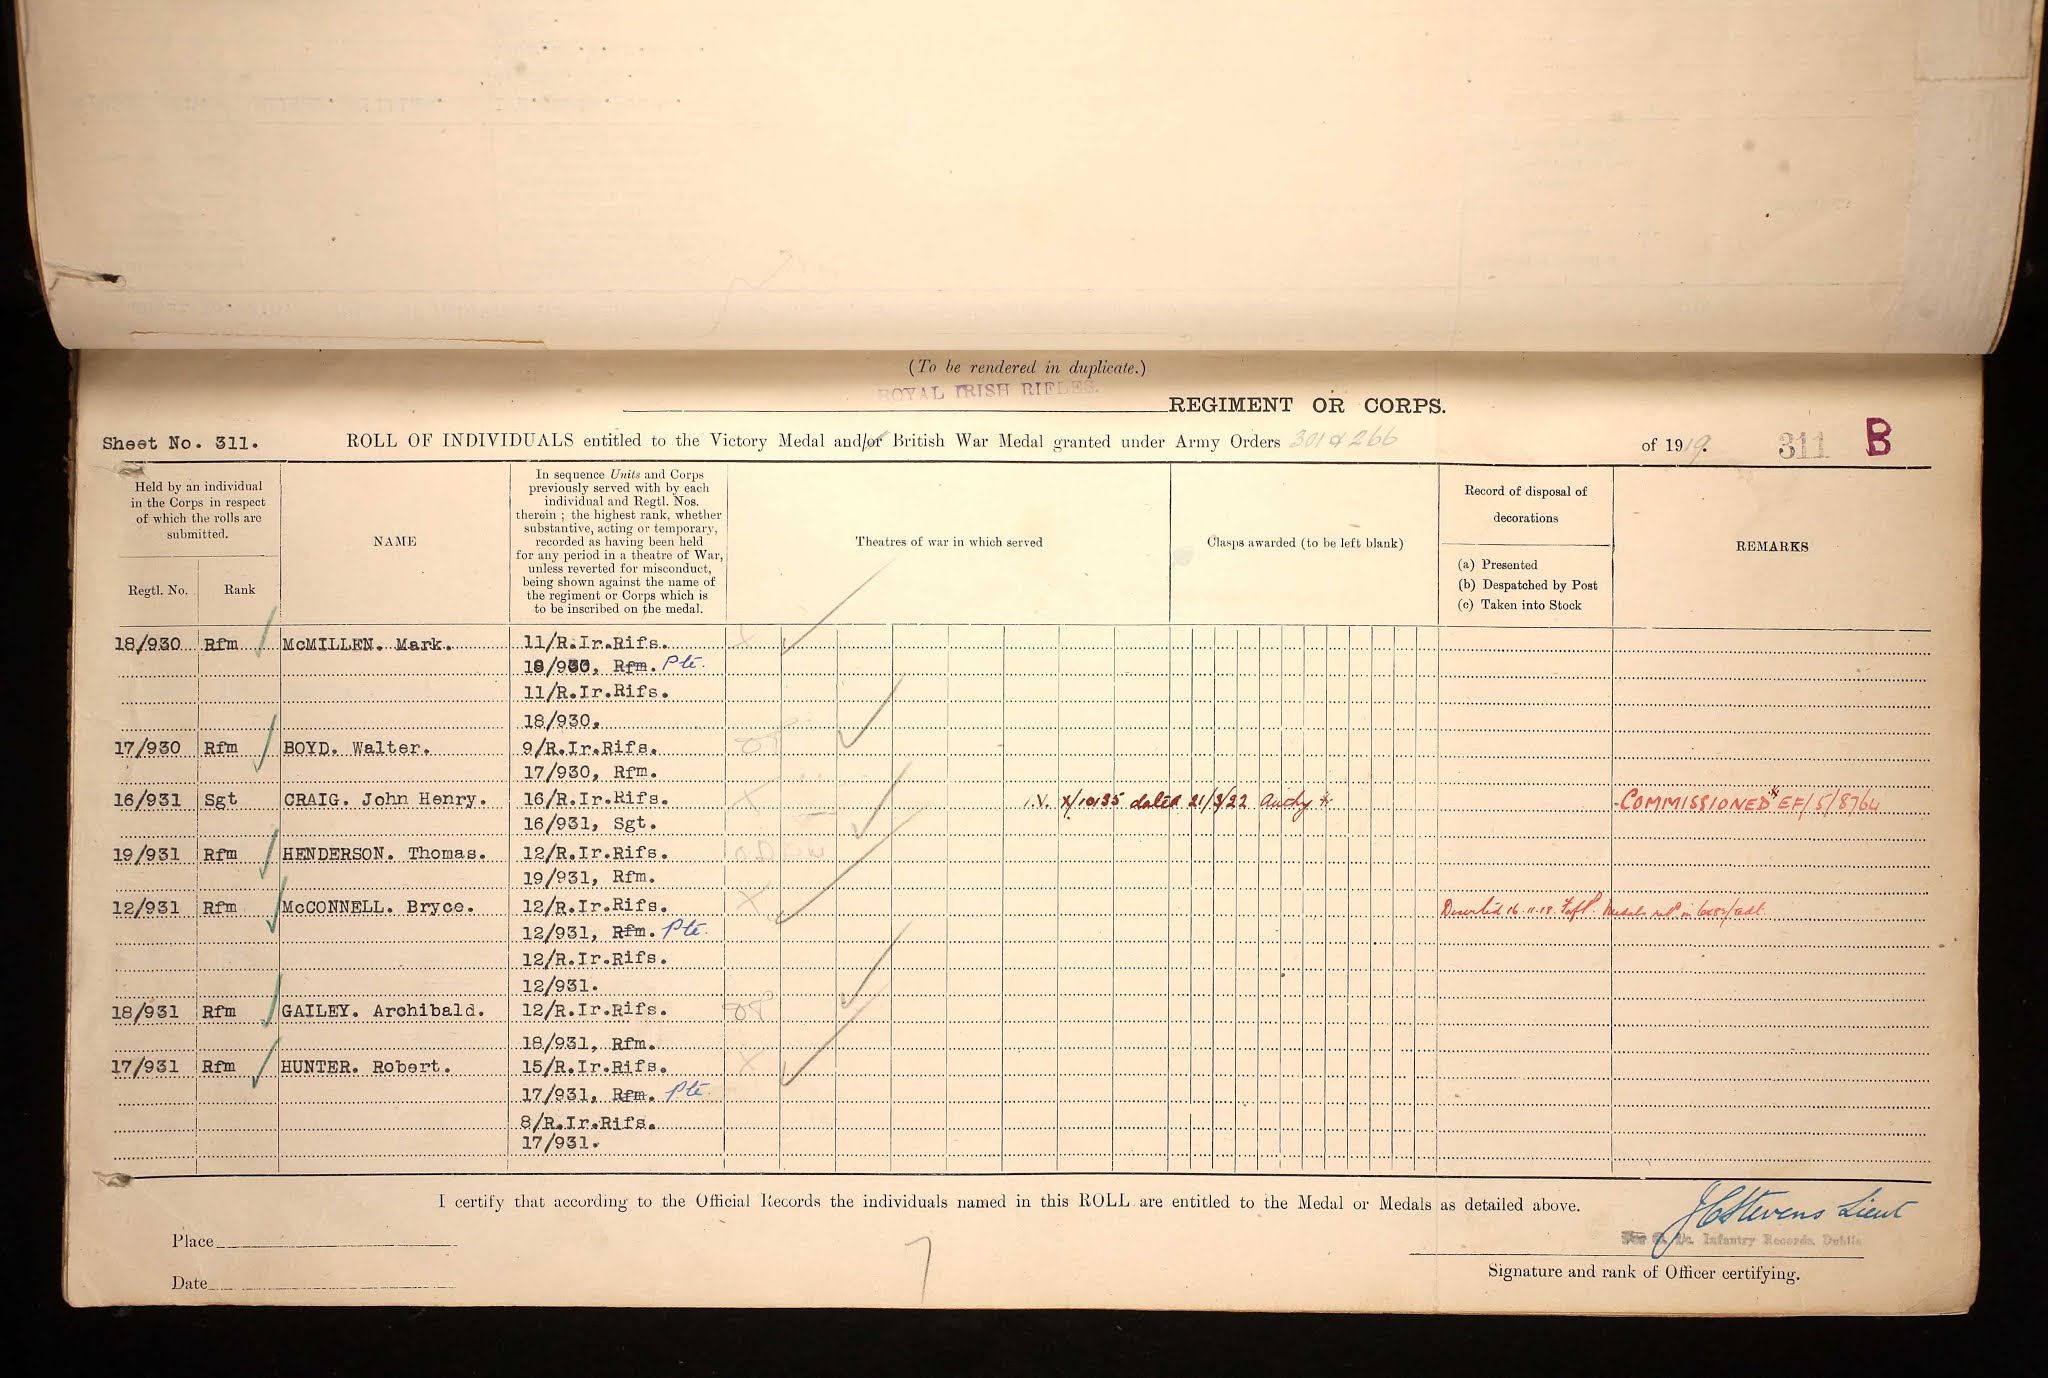 (To be rendered in duplicate.)
ROYAL IRISH RIFLES.
REGIMENT OR CORPS.
Sheet No. 311.
ROLL OF INDIVIDUALS entitled to the Victory Medal and/or British War Medal granted under Army Orders 301 & 266 of 1919. 311 B
Held by an individual
in the Corps in respect
of which the rolls are
submitted.
Regtl. No. Rank
NAME
In sequence Units and Corps
previously served with by each
individual and Regtl. Nos.
therein ; the highest rank, whether
substantive, acting or temporary,
recorded as having been held
for any period in a theatre of War,
unless reverted for misconduct,
being shown against the name of
the regiment or Corps which is
to be inscribed on the medal.
Theatres of war in which served
Clasps awarded (to be left blank)
Record of disposal of
decorations
(a) Presented
(b) Despatched by Post
(c) Taken into Stock
REMARKS
18/930 Rfm McMILLEN. Mark. 11/R.Ir.Rifs.
18/930, Rfm. Pte.
11/R.Ir.Rifs.
18/930.
17/930 Rfm BOYD. Walter. 9/R.Ir.Rifs.
17/930, Rfm.
16/931 Sgt CRAIG. John Henry. 16/R.Ir.Rifs. I.V. X/10135 dated 21/3/22 COMMISSIONED EF/5/8764
16/931, Sgt.
19/931 Rfm HENDERSON. Thomas. 12/R.Ir.Rifs.
19/931, Rfm.
12/931 Rfm McCONNELL. Bryce. 12/R.Ir.Rifs. Deserted 16.11.18. Medals
12/931, Rfm. Pte.
12/R.Ir.Rifs.
12/931.
18/931 Rfm GAILEY. Archibald. 12/R.Ir.Rifs.
18/931, Rfm.
17/931 Rfm HUNTER. Robert. 15/R.Ir.Rifs.
17/931, Rfm. Pte.
8/R.Ir.Rifs.
17/931.
I certify that according to the Official Records the individuals named in this ROLL are entitled to the Medal or Medals as detailed above.
J C Stevens Lieut
Infantry Records, Dublin
Place
Date
Signature and rank of Officer certifying.